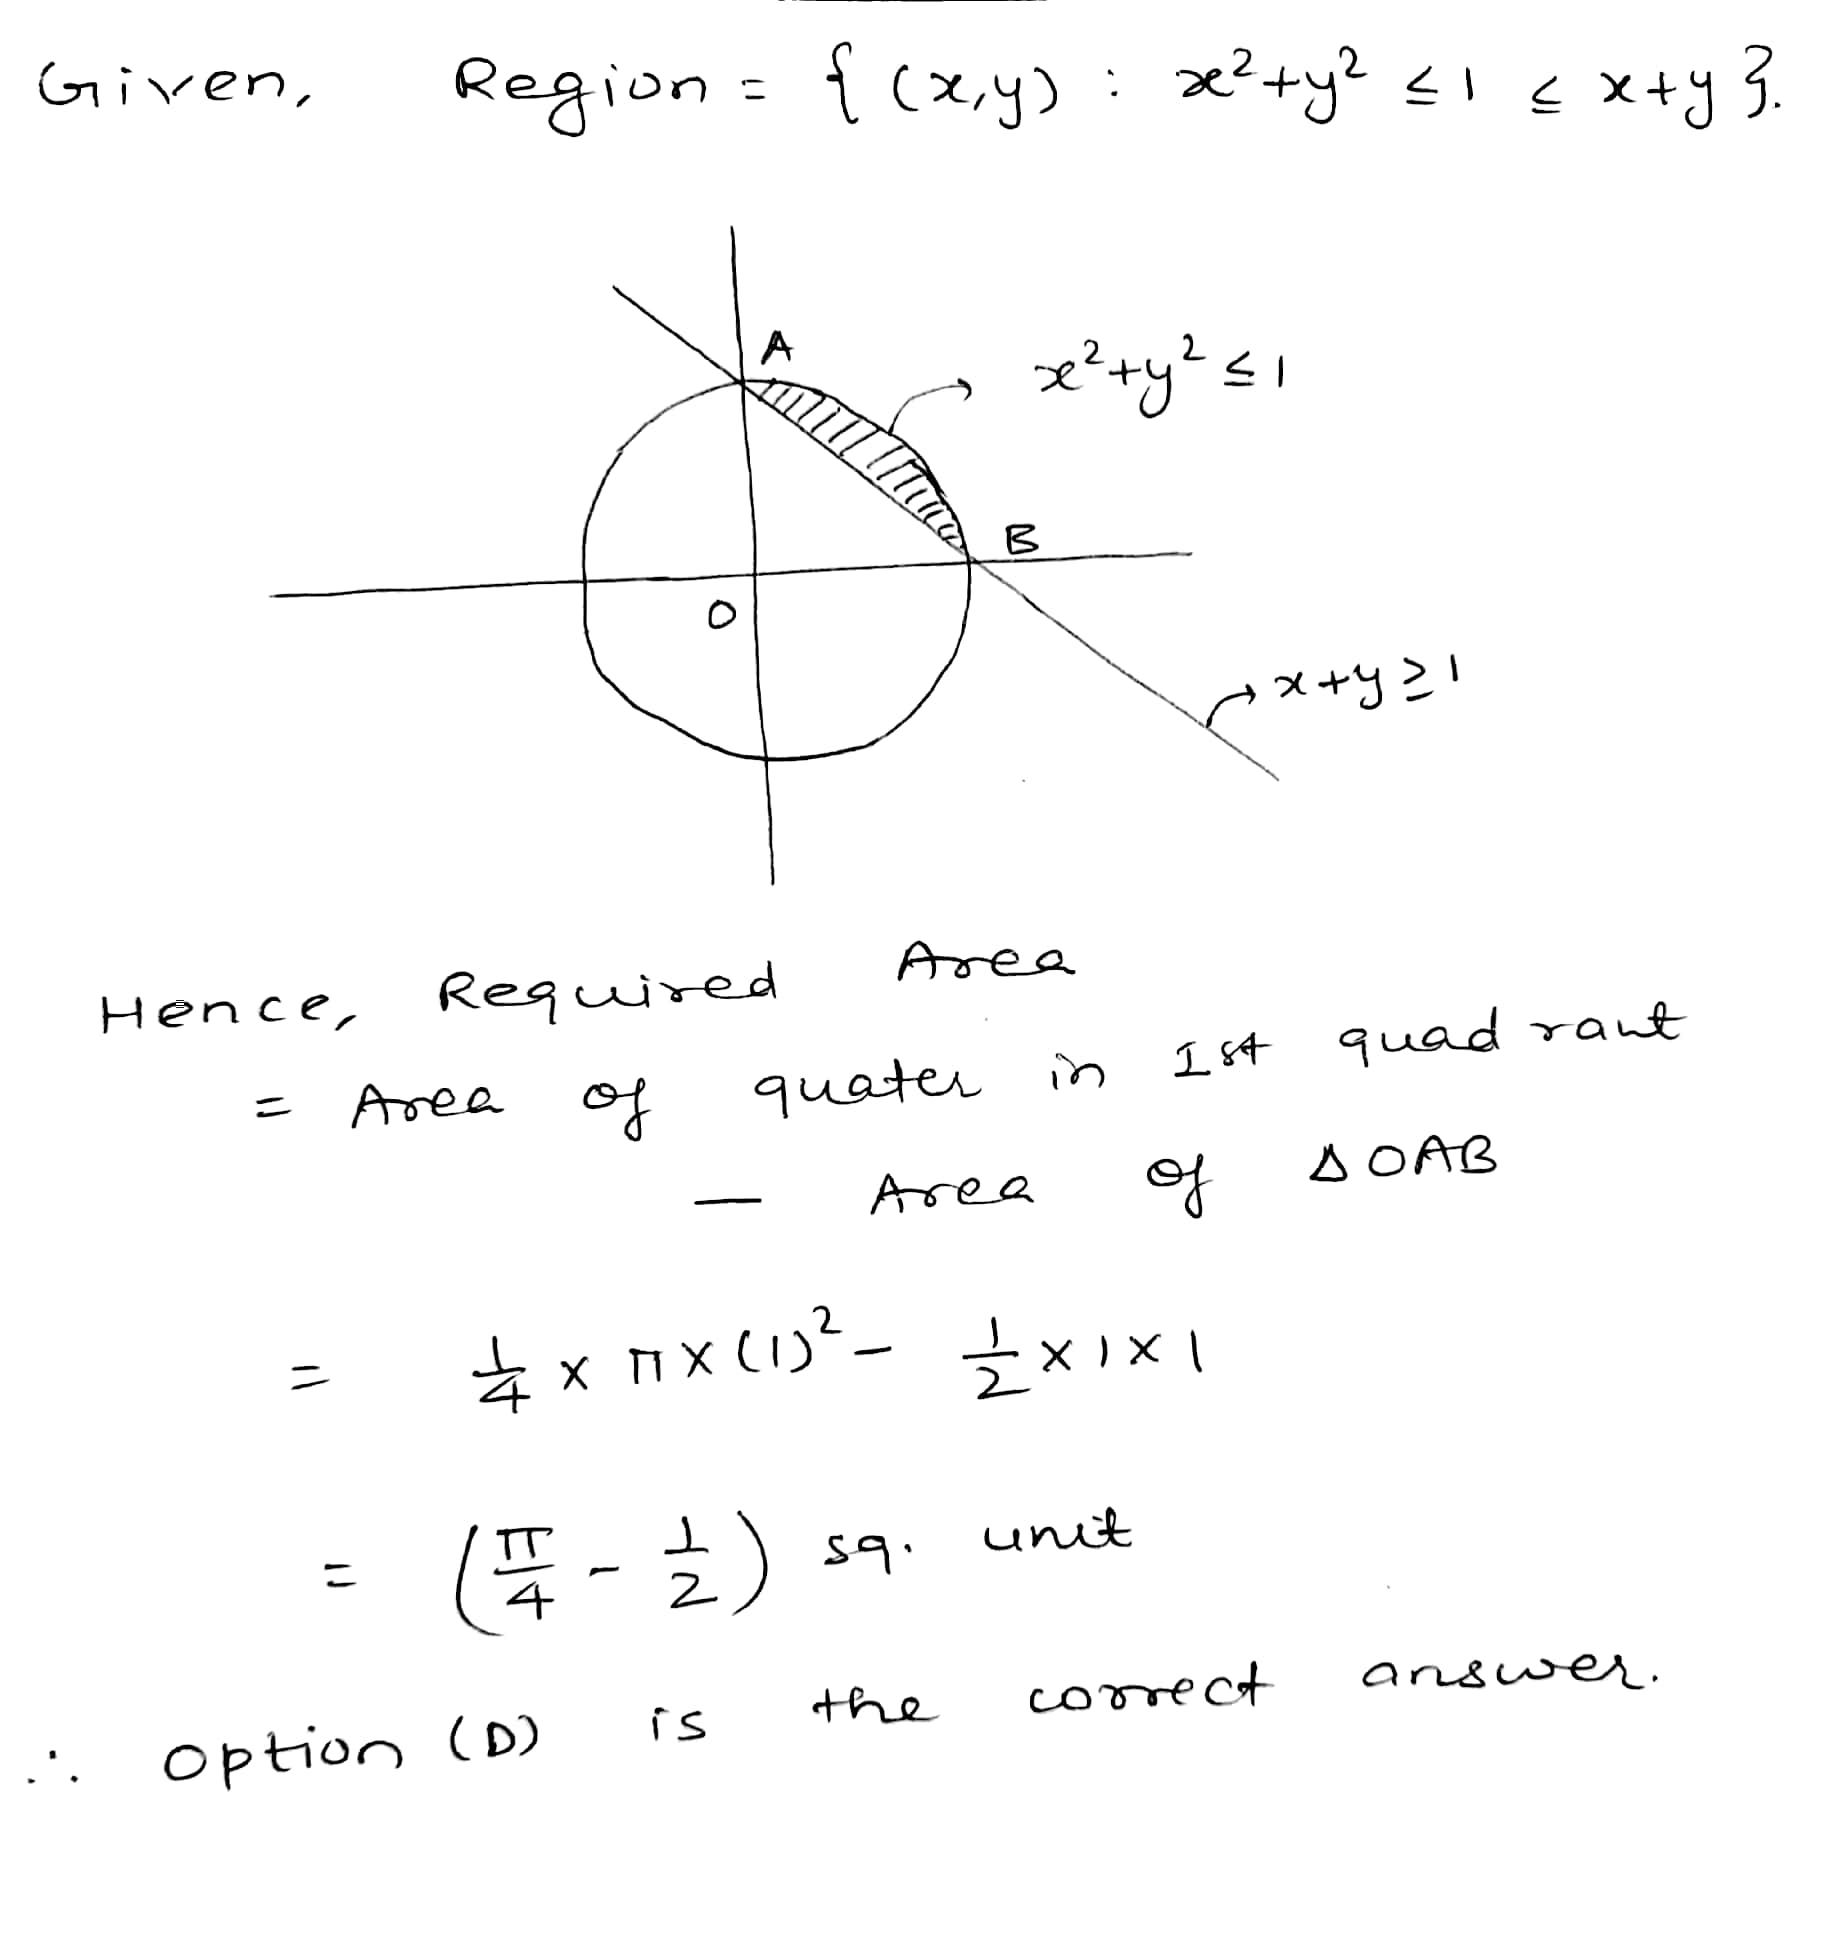 Given, Region = { (x,y) : x²+y² ≤ 1 ≤ x+y }.
A
x²+y² ≤ 1
B
O
x+y ≥ 1
Hence, Required Area
= Area of quater in Ist quadrant
— Area of ΔOAB
= 1/4 × π × (1)² - 1/2 × 1 × 1
= (π/4 - 1/2) sq. unit
∴ option (D) is the correct answer.